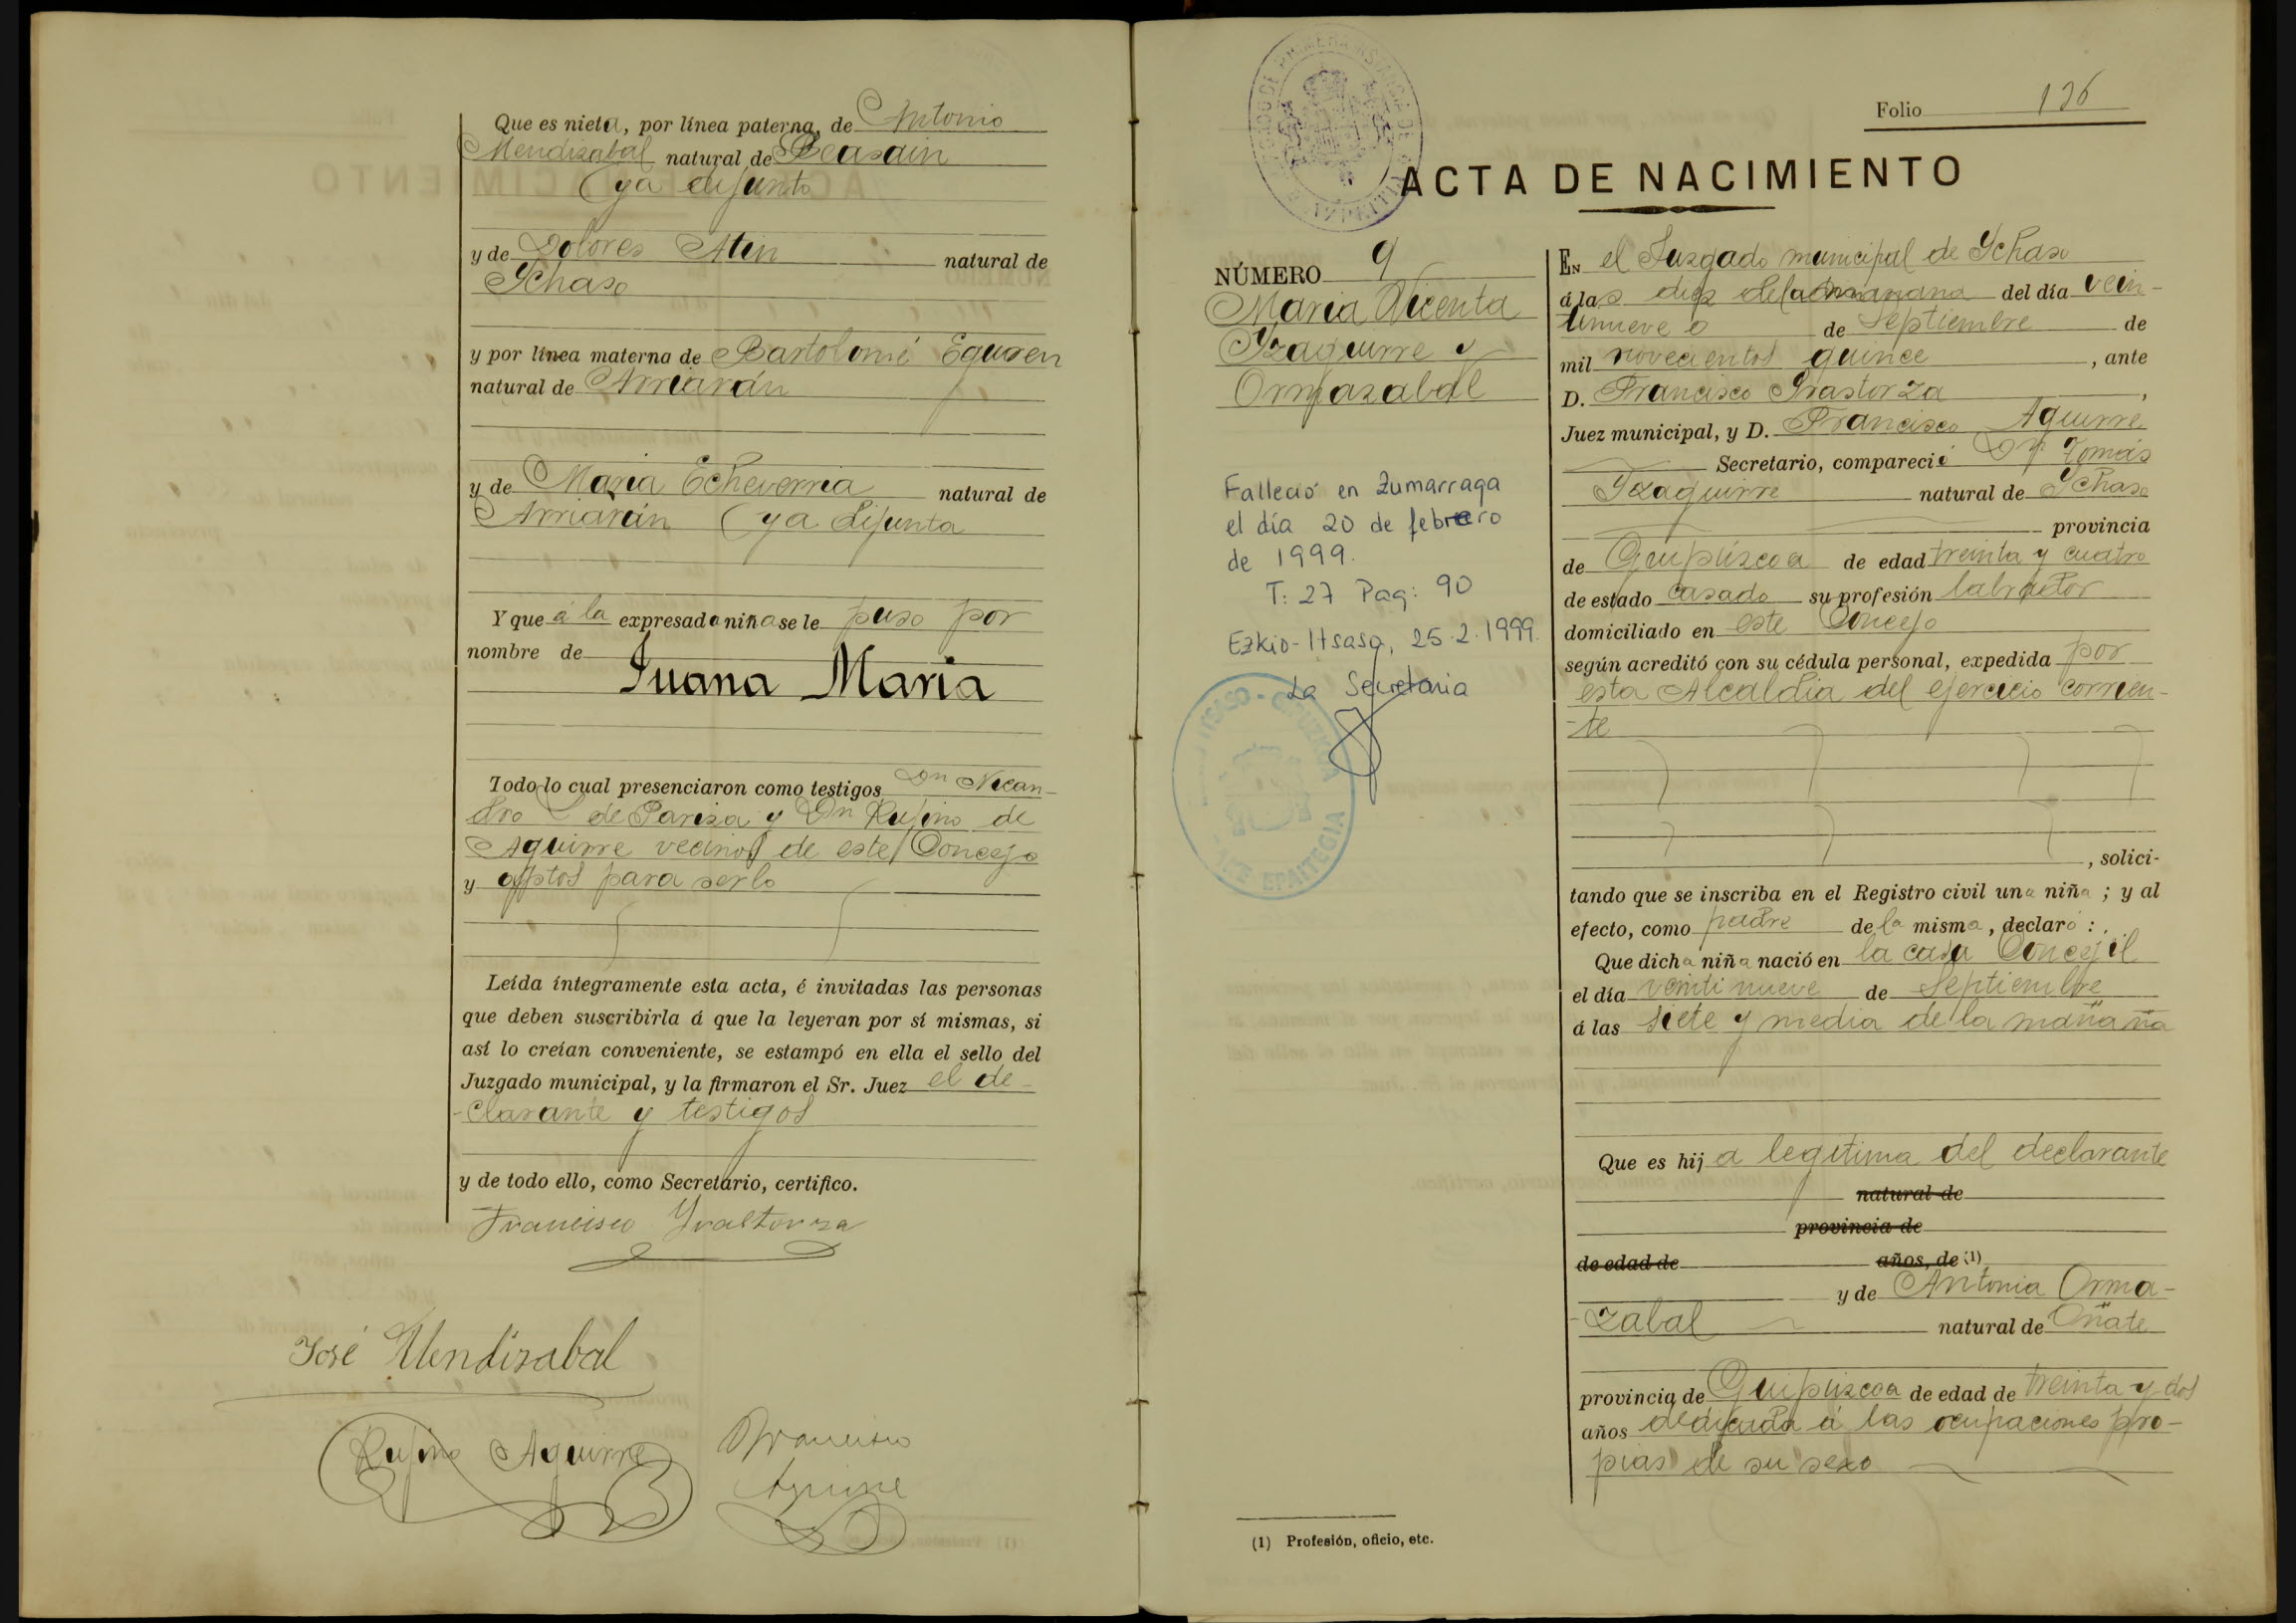 Que es nieta, por línea paterna, de Antonio
Mendizabal natural de Beasain
(ya difunto
y de Dolores Atin natural de
Ychaso
y por línea materna de Bartolomé Eguren
natural de Arriarán
y de Maria Echeverria natural de
Arriarán (ya difunta
Y que á la expresada niña se le puso por
nombre de
Juana Maria
Todo lo cual presenciaron como testigos Dn Nican-
dro L de Pariza y Dn Rufino de
Aguirre vecinos de este Concejo
y aptos para serlo
Leída íntegramente esta acta, é invitadas las personas
que deben suscribirla á que la leyeran por sí mismas, si
así lo creían conveniente, se estampó en ella el sello del
Juzgado municipal, y la firmaron el Sr. Juez el de-
-clarante y testigos
y de todo ello, como Secretario, certifico.
Francisco Yrastorza
José Mendizabal
Rufino Aguirre
Francisco
Aguirre
Folio 136
ACTA DE NACIMIENTO
NÚMERO 9
Maria Vicenta
Yzaguirre y
Ormazabal
Falleció en Zumarraga
el día 20 de febrero
de 1999.
T: 27 Pag: 90
Ezkio-Itsaso, 25.2.1999.
La Secretaria
ITSASO - GIPUZKOA
EPAITEGIA
EN el Juzgado municipal de Ychaso
á las diez de la mañana del día vein-
tinueve de Septiembre de
mil novecientos quince, ante
D. Francisco Yrastorza,
Juez municipal, y D. Francisco Aguirre
Secretario, compareció Dn Tomás
Yzaguirre natural de Ychaso
provincia
de Guipúzcoa de edad treinta y cuatro
de estado casado su profesión labrador
domiciliado en este Concejo
según acreditó con su cédula personal, expedida por
esta Alcaldia del ejercicio corrien-
-te
, solici-
tando que se inscriba en el Registro civil una niña; y al
efecto, como padre de la misma, declaró:
Que dicha niña nació en la casa Concejil
el día veintinueve de Septiembre
á las siete y media de la mañana
Que es hija legitima del declarante
natural de
provincia de
de edad de años, de (1)
y de Antonia Orma-
-zabal natural de Oñate
provincia de Guipúzcoa de edad de treinta y dos
años dedicada á las ocupaciones pro-
pias de su sexo
(1) Profesión, oficio, etc.